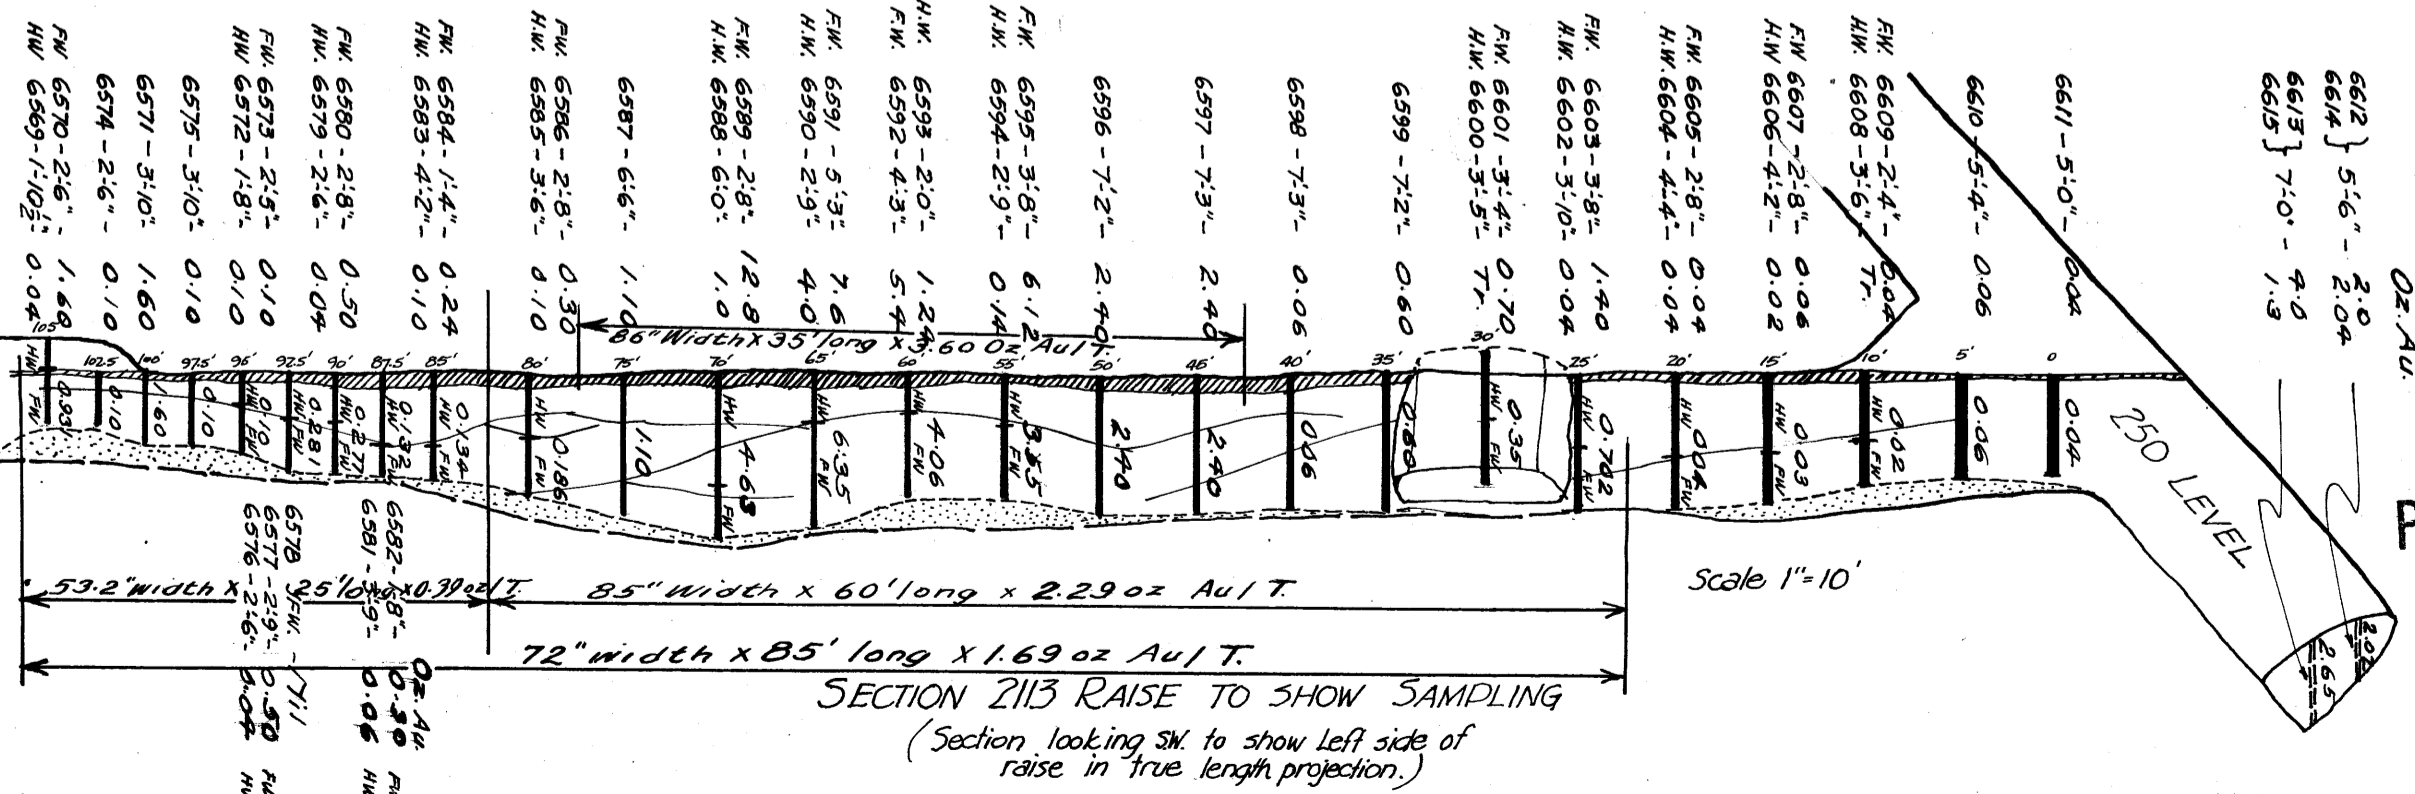 HW 6569-1'-10½"- 0.04
FW 6570-2'-6"- 1.60
6574-2'-6"- 0.10
6571-3'-10"- 1.60
6575-3'-10"- 0.10
HW 6572-1'-8"- 0.10
F.W. 6573-2'-5"- 0.10
HW. 6579-2'-6"- 0.04
FW. 6580-2'-8"- 0.50
HW. 6583-4'-2"- 0.10
FW. 6584-1'-4"- 0.24
H.W. 6585-3'-6"- 0.10
FW. 6586-2'-8"- 0.30
6587-6'-6"- 1.10
H.W. 6588-6'-0"- 1.0
F.W. 6589-2'-8"- 12.8
H.W. 6590-2'-9"- 4.0
F.W. 6591-5'-3"- 7.6
F.W. 6592-4'-3"- 5.4
H.W. 6593-2'-0"- 1.24
H.W. 6594-2'-9"- 0.14
F.W. 6595-3'-8"- 6.12
6596-7'-2"- 2.40
6597-7'-3"- 2.40
6598-7'-3"- 0.06
6599-7'-2"- 0.60
H.W. 6600-3'-5"- Tr.
F.W. 6601-3'-4"- 0.70
H.W. 6602-3'-10"- 0.04
F.W. 6603-3'-8"- 1.40
H.W. 6604-4'-4"- 0.04
F.W. 6605-2'-8"- 0.04
H.W 6606-4'-2"- 0.02
F.W 6607-2'-8"- 0.06
H.W. 6608-3'-6"- Tr.
F.W. 6609-2'-4"- 0.04
6610-5'-4"- 0.06
6611-5'-0"- 0.04
6612 } 5'-6"- 2.0
6614 } 2.04
6613 } 7'-0"- 4.0
6615 } 1.3
Oz. Au.
86" Width x 35' long x 3.60 Oz Au/T.
105' 102.5 100' 97.5' 95' 92.5' 90' 87.5' 85' 80' 75' 70' 65' 60' 55' 50' 45' 40' 35' 30' 25' 20' 15' 10' 5' 0
HW FW 0.931
0.10
1.60
0.10
HW FW 0.10
HW FW 0.281
HW FW 0.277
HW FW 0.132
HW FW 0.134
HW FW 0.186
1.10
HW FW 4.63
HW FW 6.35
HW FW 4.06
HW FW 3.55
2.40
2.40
0.06
0.60
HW FW 0.35
HW FW 0.702
HW FW 0.04
HW FW 0.03
HW FW 0.02
0.06
0.04
250 LEVEL
2.65
P
6576-2'-6"- 0.04 HW
6577-2'-9"- 0.50 FW
6578
6581-3'-9"- 0.06 HW
6582-1'-8"- 0.30 FW
Oz. Au.
53.2" width x 25' long x 0.39 oz/T.
85" Width x 60' long x 2.29 oz Au/T.
Scale 1"=10'
72" width x 85' long x 1.69 oz Au/T.
SECTION 2113 RAISE TO SHOW SAMPLING
(Section looking SW. to show Left side of
raise in true length projection.)